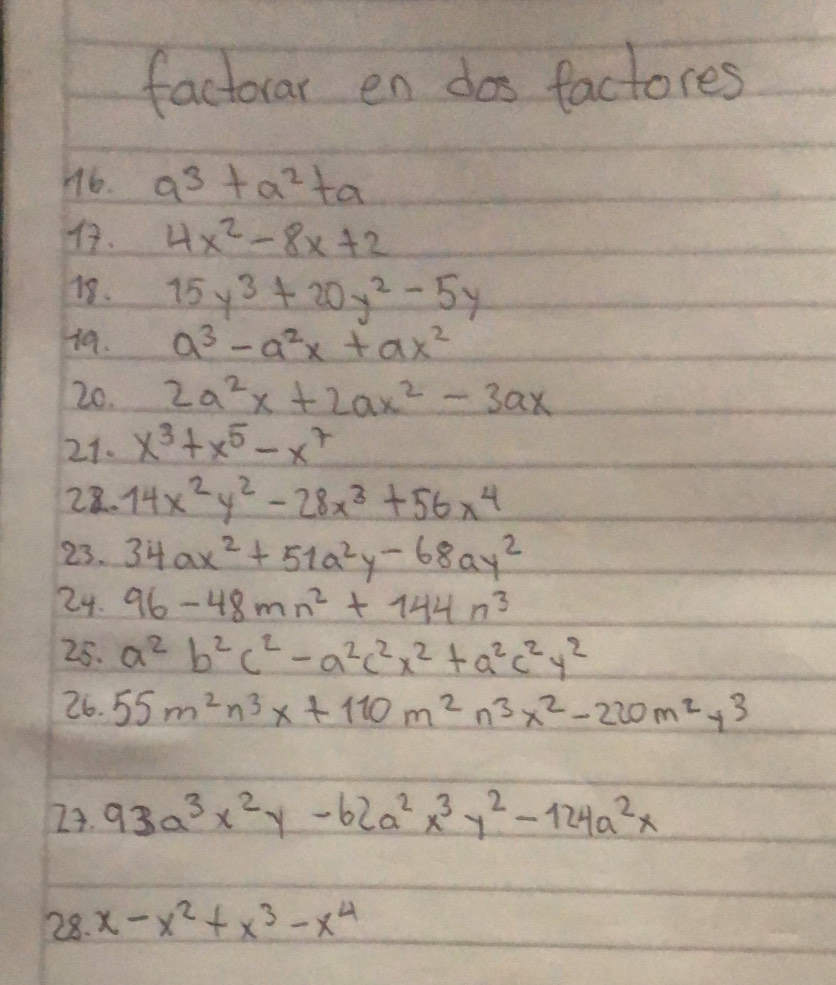 factorar en dos factores
16. a³ + a² + a
17. 4x² - 8x + 2
18. 15y³ + 20y² - 5y
19. a³ - a²x + ax²
20. 2a²x + 2ax² - 3ax
21. x³ + x⁵ - x⁷
22. 14x²y² - 28x³ + 56x⁴
23. 34ax² + 51a²y - 68ay²
24. 96 - 48mn² + 144n³
25. a² b²c² - a²c²x² + a²c²y²
26. 55m²n³x + 110m²n³x² - 220m²y³
27. 93a³x²y - 62a²x³y² - 124a²x
28. x - x² + x³ - x⁴